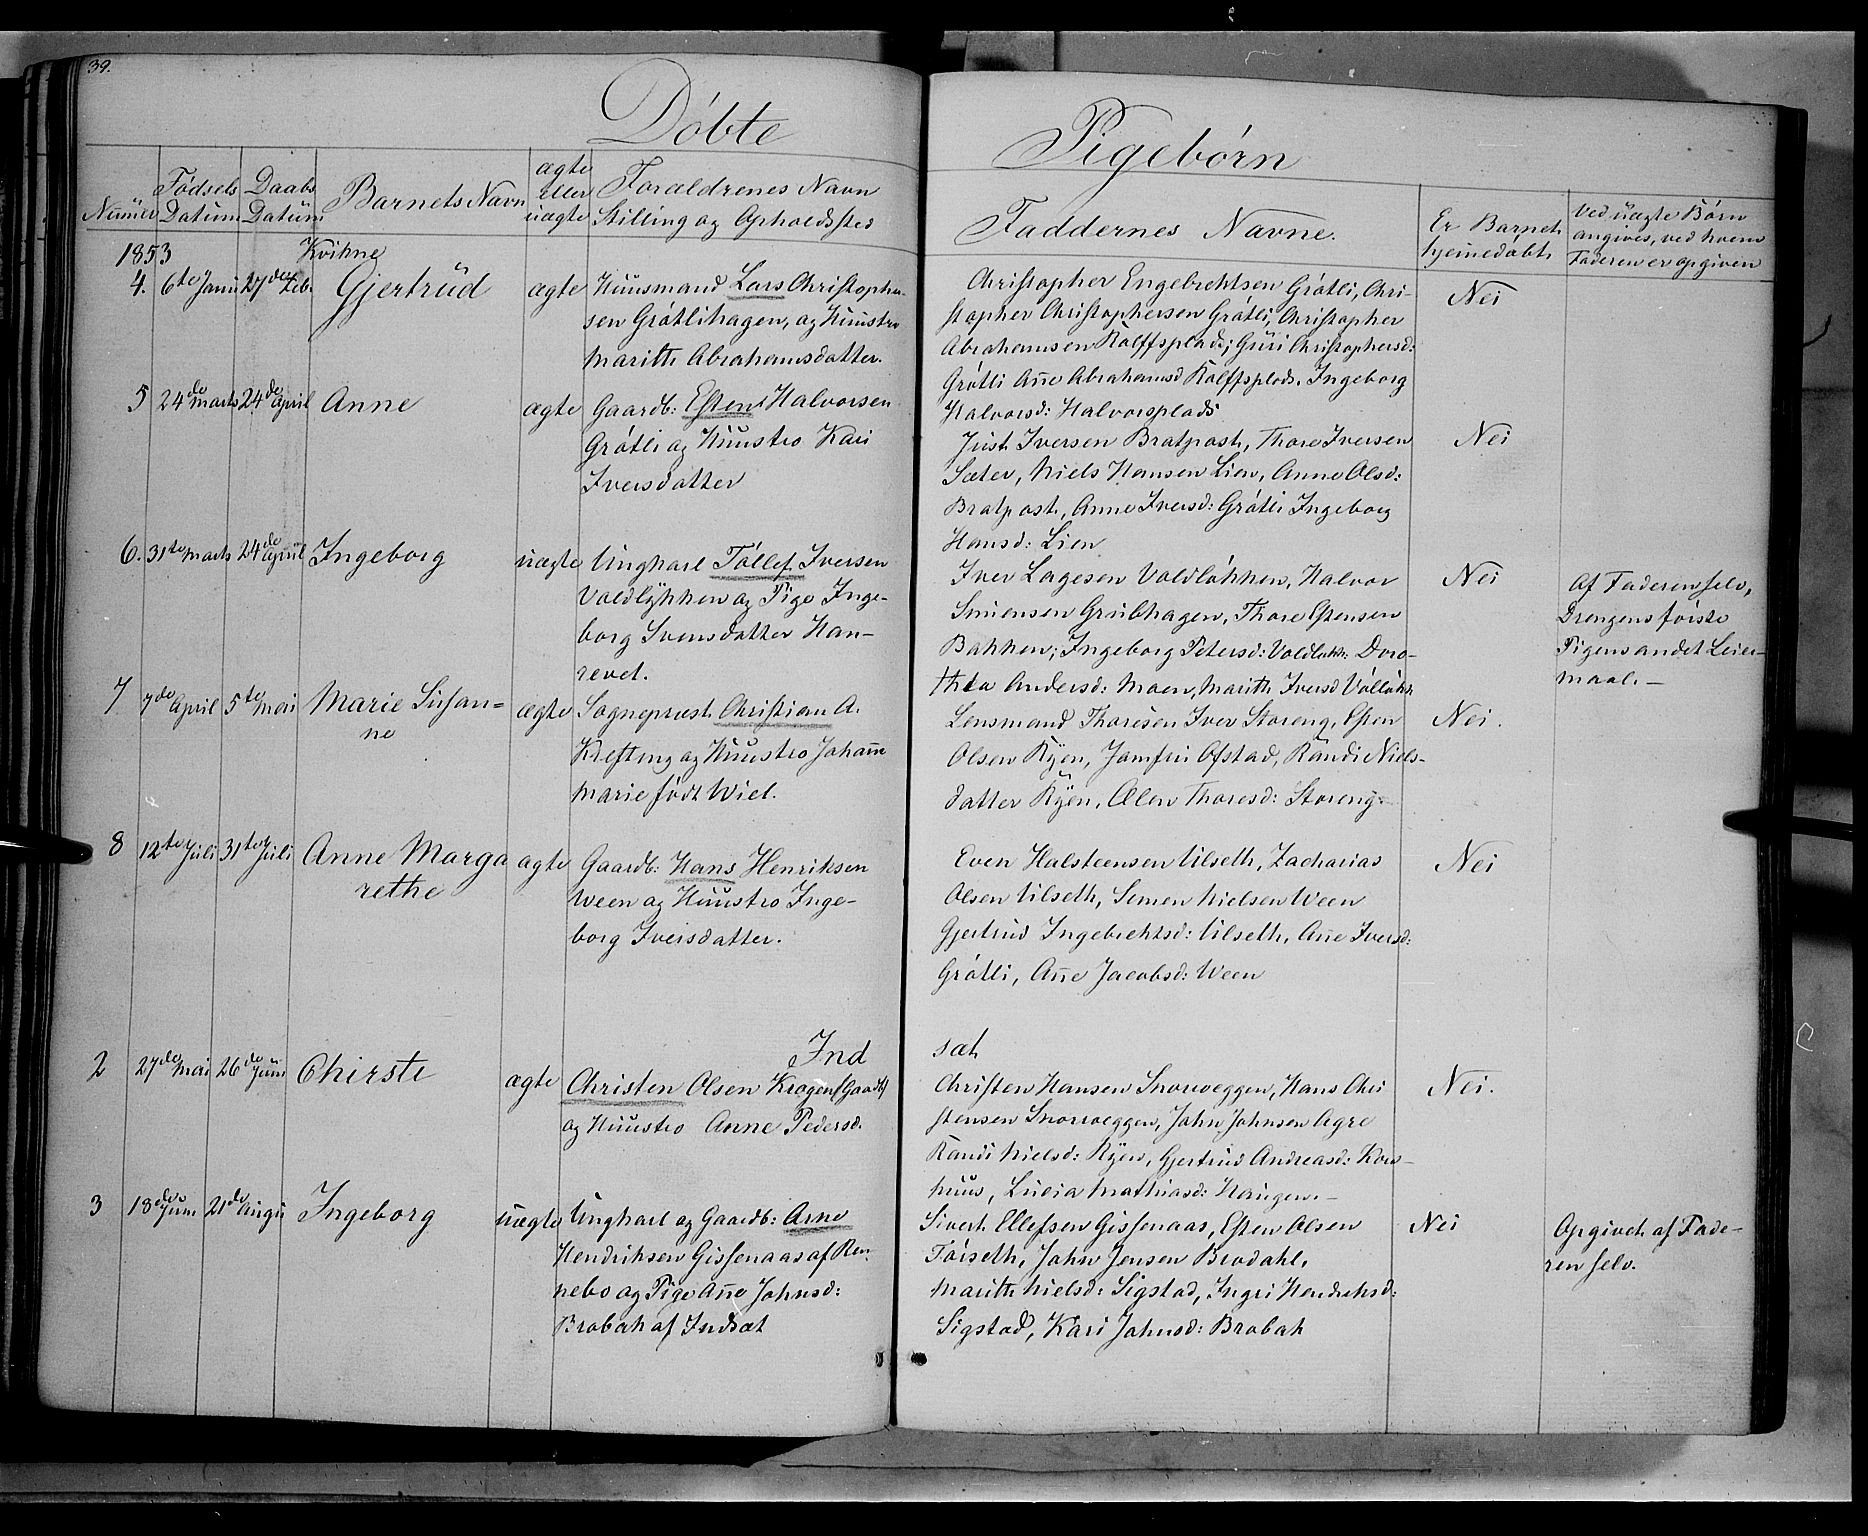 39.
Döbte Pigebörn
Numer Födsels Datum Daabs Datum Barnets Navn ægte eller uægte Forældrenes Navn Stilling og Opholdssted Faddernes Navne. Er Barnet hjemedöbt Ved uægte Börn angives, ved hvem Faderen er opgiven
1853 Kvikne
4. 6te Janu 27de Feb. Gjertrüd ægte
Huusmand Lars Christopher-
sen Grötlihagen, og Huustro
Marith Abrahamsdatter.
Christopher Engebrehtsen Grötli, Chri-
stopher Christophersen Grötli, Christopher
Abrahamsen Rolffsplads; Guri Christophersd:
Grötli Añe Abrahamsd Rolffsplads. Ingeborg
Halvorsd: Halvorsplads
Nei
5 24de Marts 24de April Anne ægte
Gaardb: Esten Halvorsen
Grötli og Huustro Kari
Iversdatter
Just Iversen Bratpost, Thore Iversen
Sæter, Niels Hansen Lien, Anne Olsd:
Bratpost, Anne Iversd: Grötli Ingeborg
Hansd: Lien
Nei
6. 31te Marts 24de April Ingeborg uægte
Ungkarl Töllef Iversen
Voldlykken og Pige Inge-
borg Svensdatter Han-
revet.
Iver Lagesen Voldlökken, Halvor
Simensen Grubhagen, Thore Estensen
Bakken; Ingeborg Petersd: Voldløk: Doro-
thea Andersd: Moen, Marith Iversd Völlökk
Nei
Af Faderen selv,
Drengens förste
Pigens andet Leier-
maal. —
7 7de April 5te Mai Marie Susan-
ne
ægte
Sogneprest Christian A.
Krefting og Huustro Johañe
Marie født Wiel.
Lensmand Thoresen Iver Storeng, Esten
Olsen Ryen, Jamfru Ofstad, Randi Niels-
datter Ryen, Olen Thoresd: Storeng.
Nei.
8 12te Juli 31te Juli Anne Marga
rethe
ægte
Gaardb: Hans Henriksen
Ween og Huustro Inge-
borg Iversdatter.
Even Halsteensen Vilseth, Zacharias
Olsen Vilseth, Semen Nielsen Ween
Gjertrud Ingebrehtsd: Vilseth, Añe Iversd:
Grötli, Añe Jacobsd: Ween
Nei
Ind sæt
2 27de Mai 26de Juni Chirste ægte
Christen Olsen Krogen (Gaardb)
og Huustro Anne Pedersd.
Christen Hansen Snoeveggen, Hans Chri
stensen Snoeveggen, John Johnsen Agre
Randi Nielsd: Ryen, Gjertrud Andreasd: Korn-
huus, Lucia Mathiasd: Haugen. —
Nei.
3 18de Juni 21de Augu Ingeborg uægte
Ungkarl og Gaardb: Arne
Hendriksen Gissenaas af Ren
nebo og Pige Añe Johnsd:
Brobak af Indsæt
Sivert Ellefsen Gissenaas, Esten Olsen
Torseth, John Jensen Brodahl,
Marith Nielsd: Sigstad, Ingri Hendrehsd:
Sigstad, Kari Johnsd: Brobak
Nei
Opgivet af Fade-
ren selv.